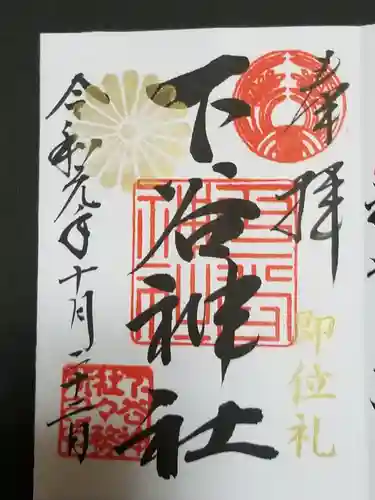 奉拝
即位礼
下谷神社
下谷
神社
令和元年十月二十二日